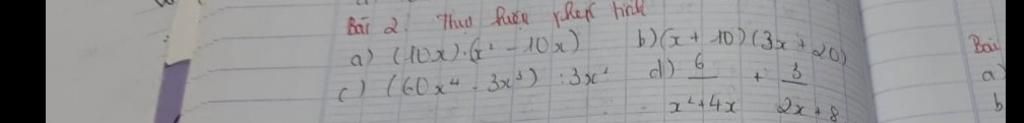 Bài 2: Thực hiện phép tính
a) (10x).(x² - 10x) b) (x + 10)(3x + 20) Bài
c) (60x⁴ - 3x³) : 3x² d) 6/x²+4x + 3/2x+8 a)
b